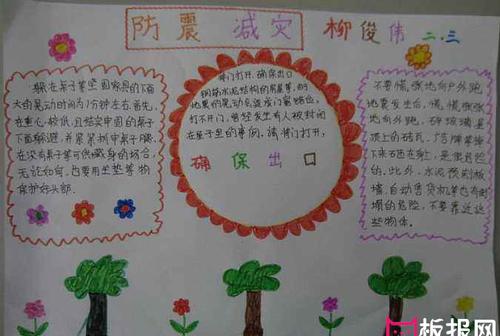 防震 减灾 柳俊伟 二.三
躲在桌子等坚固家具的下面
大的晃动时间约1分钟左右。首先,
在重心较低,且结实牢固的桌子
下面躲避,并紧紧抓牢桌子腿。
在没有桌子等可供藏身的场合,
无论如何,也要用坐垫等物
保护好头部.
将门打开,确保出口
钢筋水泥结构的房屋等,由于
地震的晃动会造成门窗错位,
打不开门,曾经发生有人被封闭
在屋子里的事例。请将门打开,
确保出口
不要慌,张地向户外跑
地震发生后,慌慌张张
地向外跑,碎玻璃、屋
顶上的砖瓦、广告牌等掉
下来砸在身上,是很危险
的。此外,水泥预制板
墙、自动售货机等也有倒
塌的危险,不要靠近这
些物体.
板报网